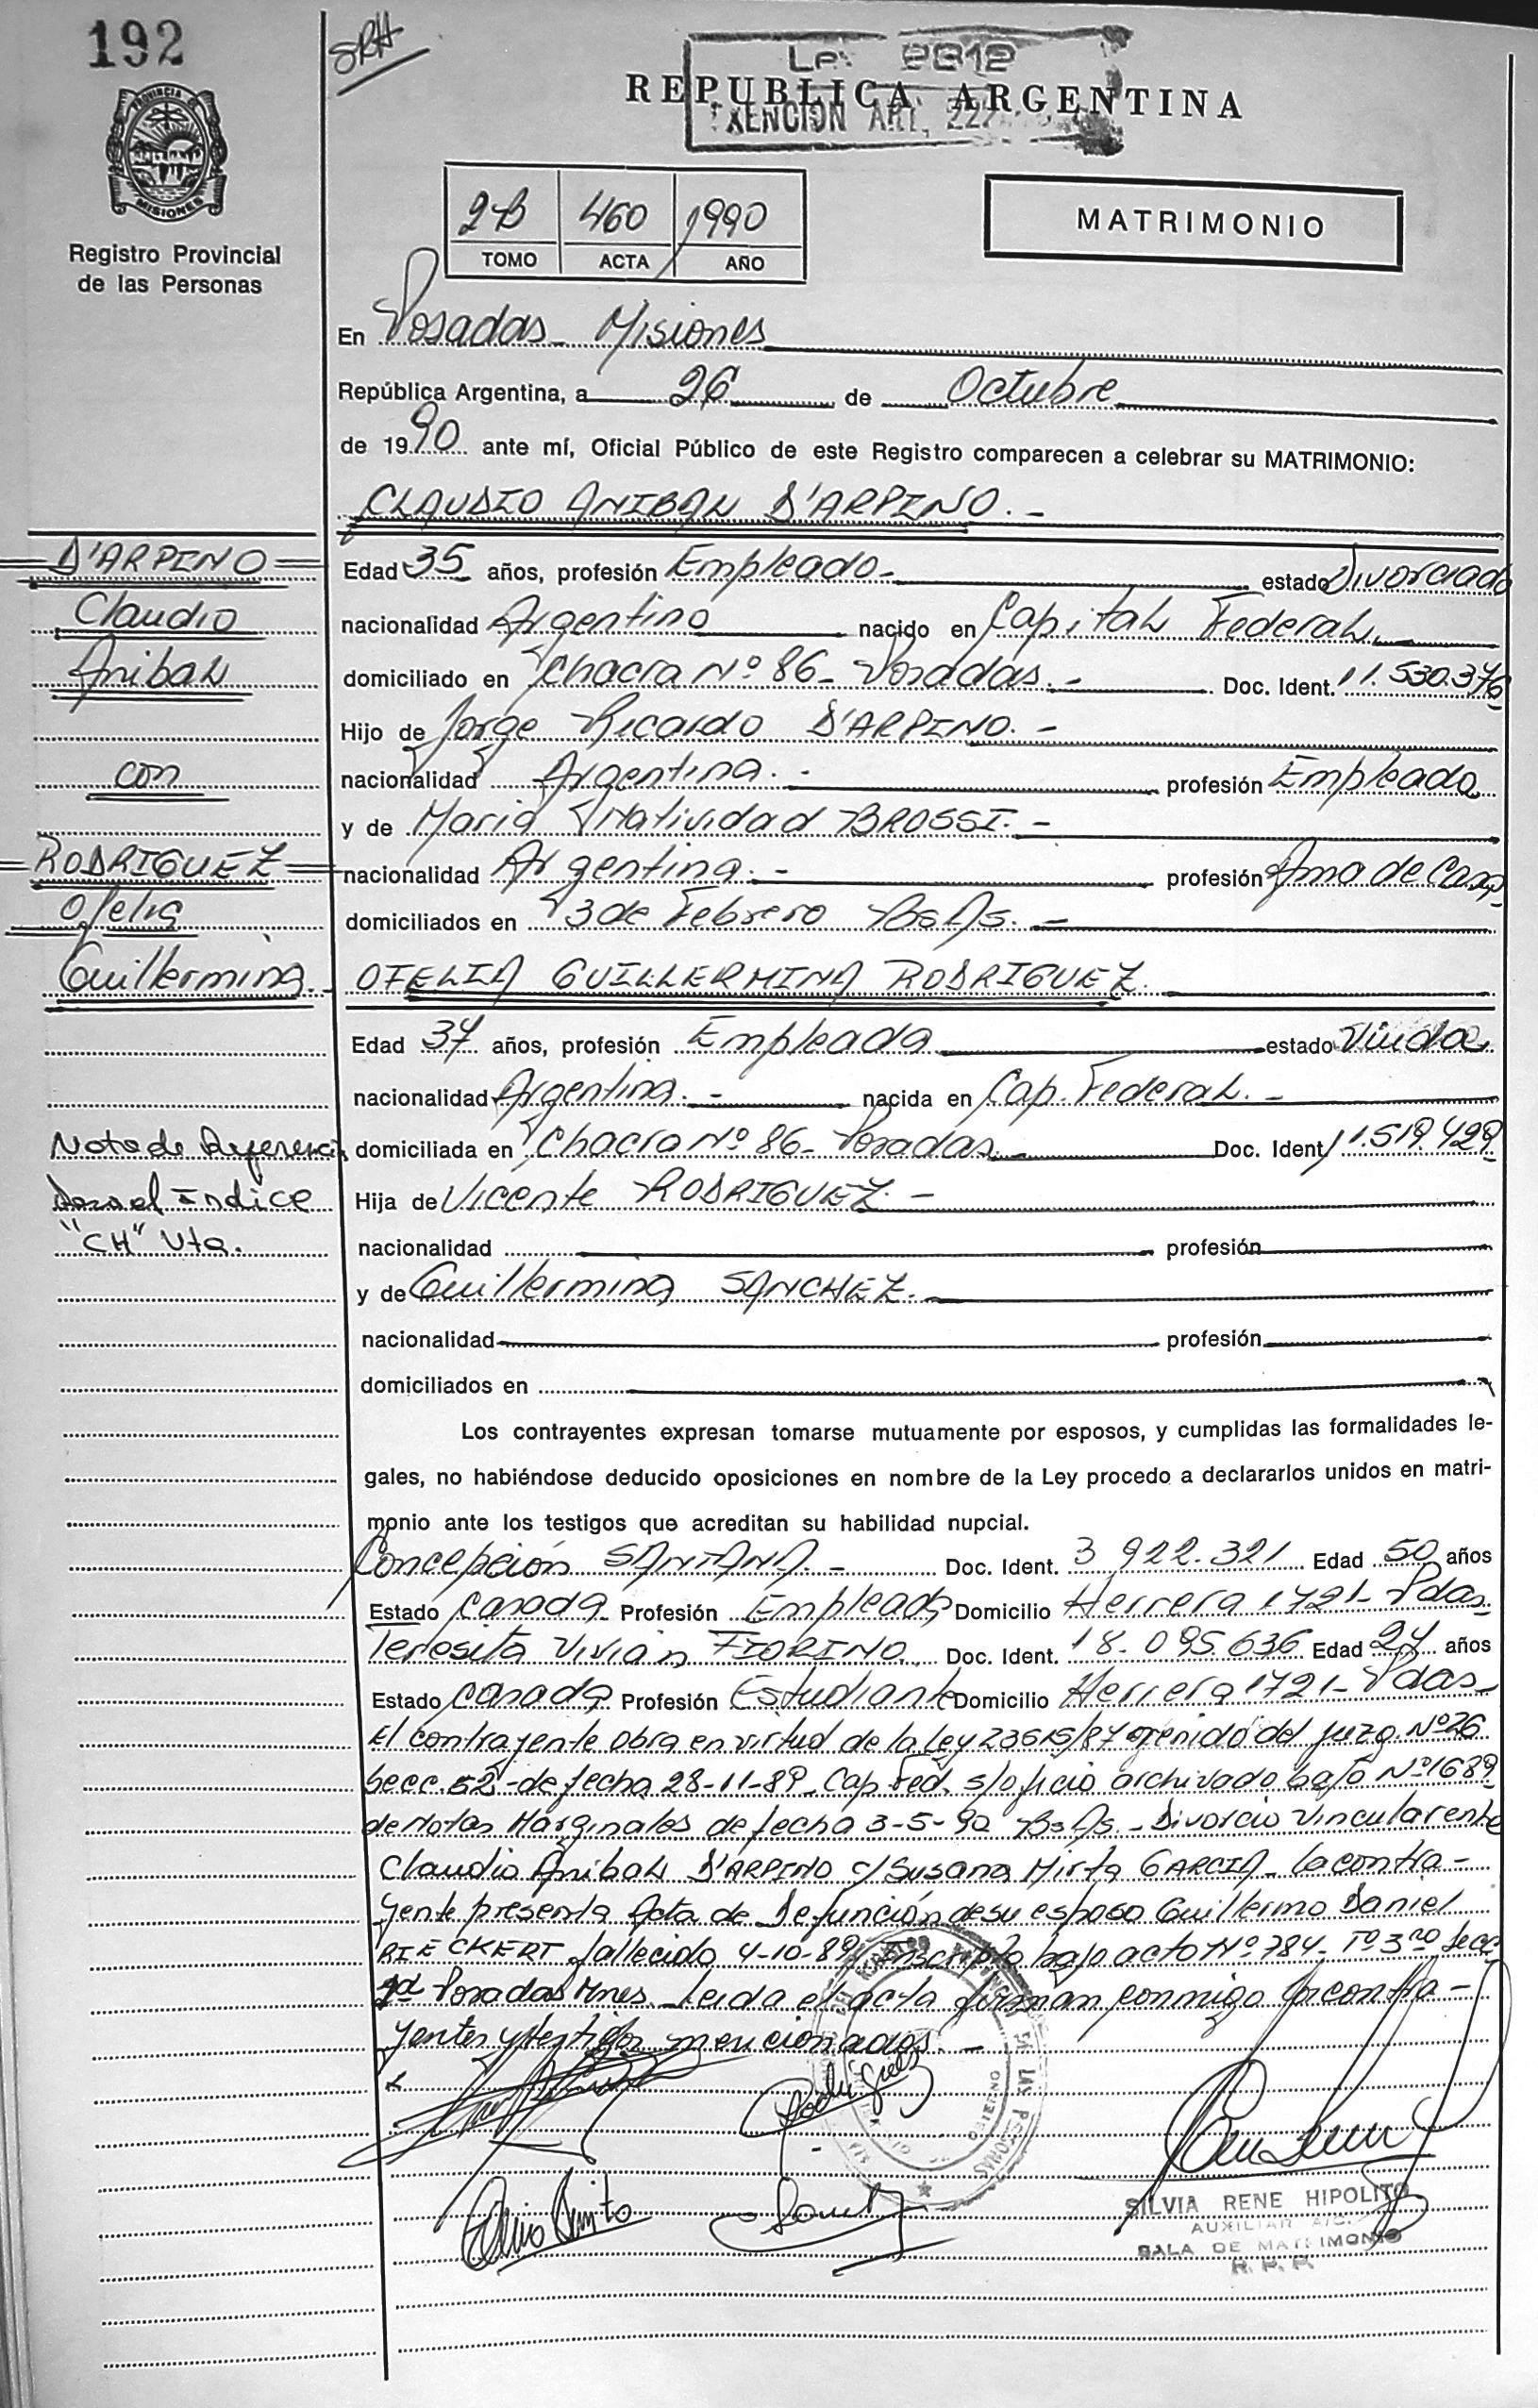 192
SRH
Ley 2812
EXENCION ART. 222
REPUBLICA ARGENTINA
PROVINCIA DE
MISIONES
Registro Provincial
de las Personas
2-B 460 1990
TOMO ACTA AÑO
MATRIMONIO
En Posadas - Misiones
República Argentina, a 26 de Octubre
de 1990 ante mí, Oficial Público de este Registro comparecen a celebrar su MATRIMONIO:
CLAUDIO ANIBAL D'ARPINO.-
D'ARPINO
Claudio
Anibal
con
RODRIGUEZ
Ofelia
Guillermina.-
Edad 35 años, profesión Empleado- estado Divorciado
nacionalidad Argentino nacido en Capital Federal.
domiciliado en Chacra Nº 86- Posadas.- Doc. Ident. 11.530.376
Hijo de Jorge Ricardo D'ARPINO.-
nacionalidad Argentina.- profesión Empleado
y de Maria Natividad BROSSI.-
nacionalidad Argentina.- profesión Ama de Casa
domiciliados en 3 de Febrero Bs As.-
OFELIA GUILLERMINA RODRIGUEZ.
Edad 37 años, profesión Empleada estado Viuda
nacionalidad Argentina.- nacida en Cap. Federal.-
domiciliada en Chacra Nº 86- Posadas.- Doc. Ident 11.519.429
Hija de Vicente RODRIGUEZ.-
nacionalidad profesión
y de Guillermina SANCHEZ.
nacionalidad profesión
domiciliados en
Nota de Referencia
para el indice
"CH" Vta.
Los contrayentes expresan tomarse mutuamente por esposos, y cumplidas las formalidades le-
gales, no habiéndose deducido oposiciones en nombre de la Ley procedo a declararlos unidos en matri-
monio ante los testigos que acreditan su habilidad nupcial.
Concepción SANTANA.- Doc. Ident. 3 922.321 Edad 50 años
Estado Casada Profesión Empleada Domicilio Herrera 1721- Pdas.
Teresita Vivian FIORINO. Doc. Ident. 18.095.636 Edad 24 años
Estado Casada Profesión Estudiante Domicilio Herrera 1721- Pdas-
El contrayente obra en virtud de la Ley 23515/87 del juzg. Nº 26
Secc. 52-de fecha 28-11-89- Cap Fed. s/oficio archivado bajo Nº 1689
de Notas Marginales de fecha 3-5-90 Bs As. - Divorcio Vincular entre
Claudio Anibal D'ARPINO c/ Susana Mirta GARCIA- la contra-
yente presenta Acta de Defunción de su esposo Guillermo Daniel
RIECKERT fallecido 4-10-89, Inscripto bajo acta Nº 784- Tº 3ro Secc
Posadas Mnes. Leida el acta firman conmigo los contra-
yentes y testigos mencionados.-
Rodriguez
SILVIA RENE HIPOLITO
AUXILIAR A/C.
SALA DE MATRIMONIO
R. P. P.